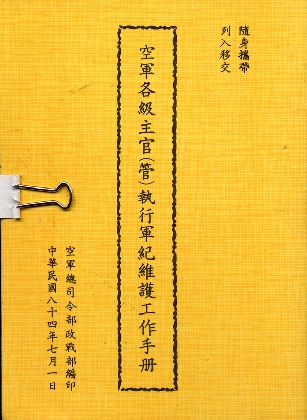 隨身攜帶
列入移交
空軍各級主官(管)執行軍紀維護工作手册
空軍總司令部政戰部編印
中華民國八十四年七月一日